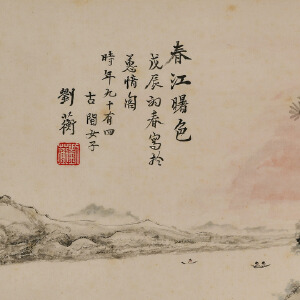 春江曙色
戊辰初春寫於
蕙愔閣
古閩女子
時年九十有四
劉蘅